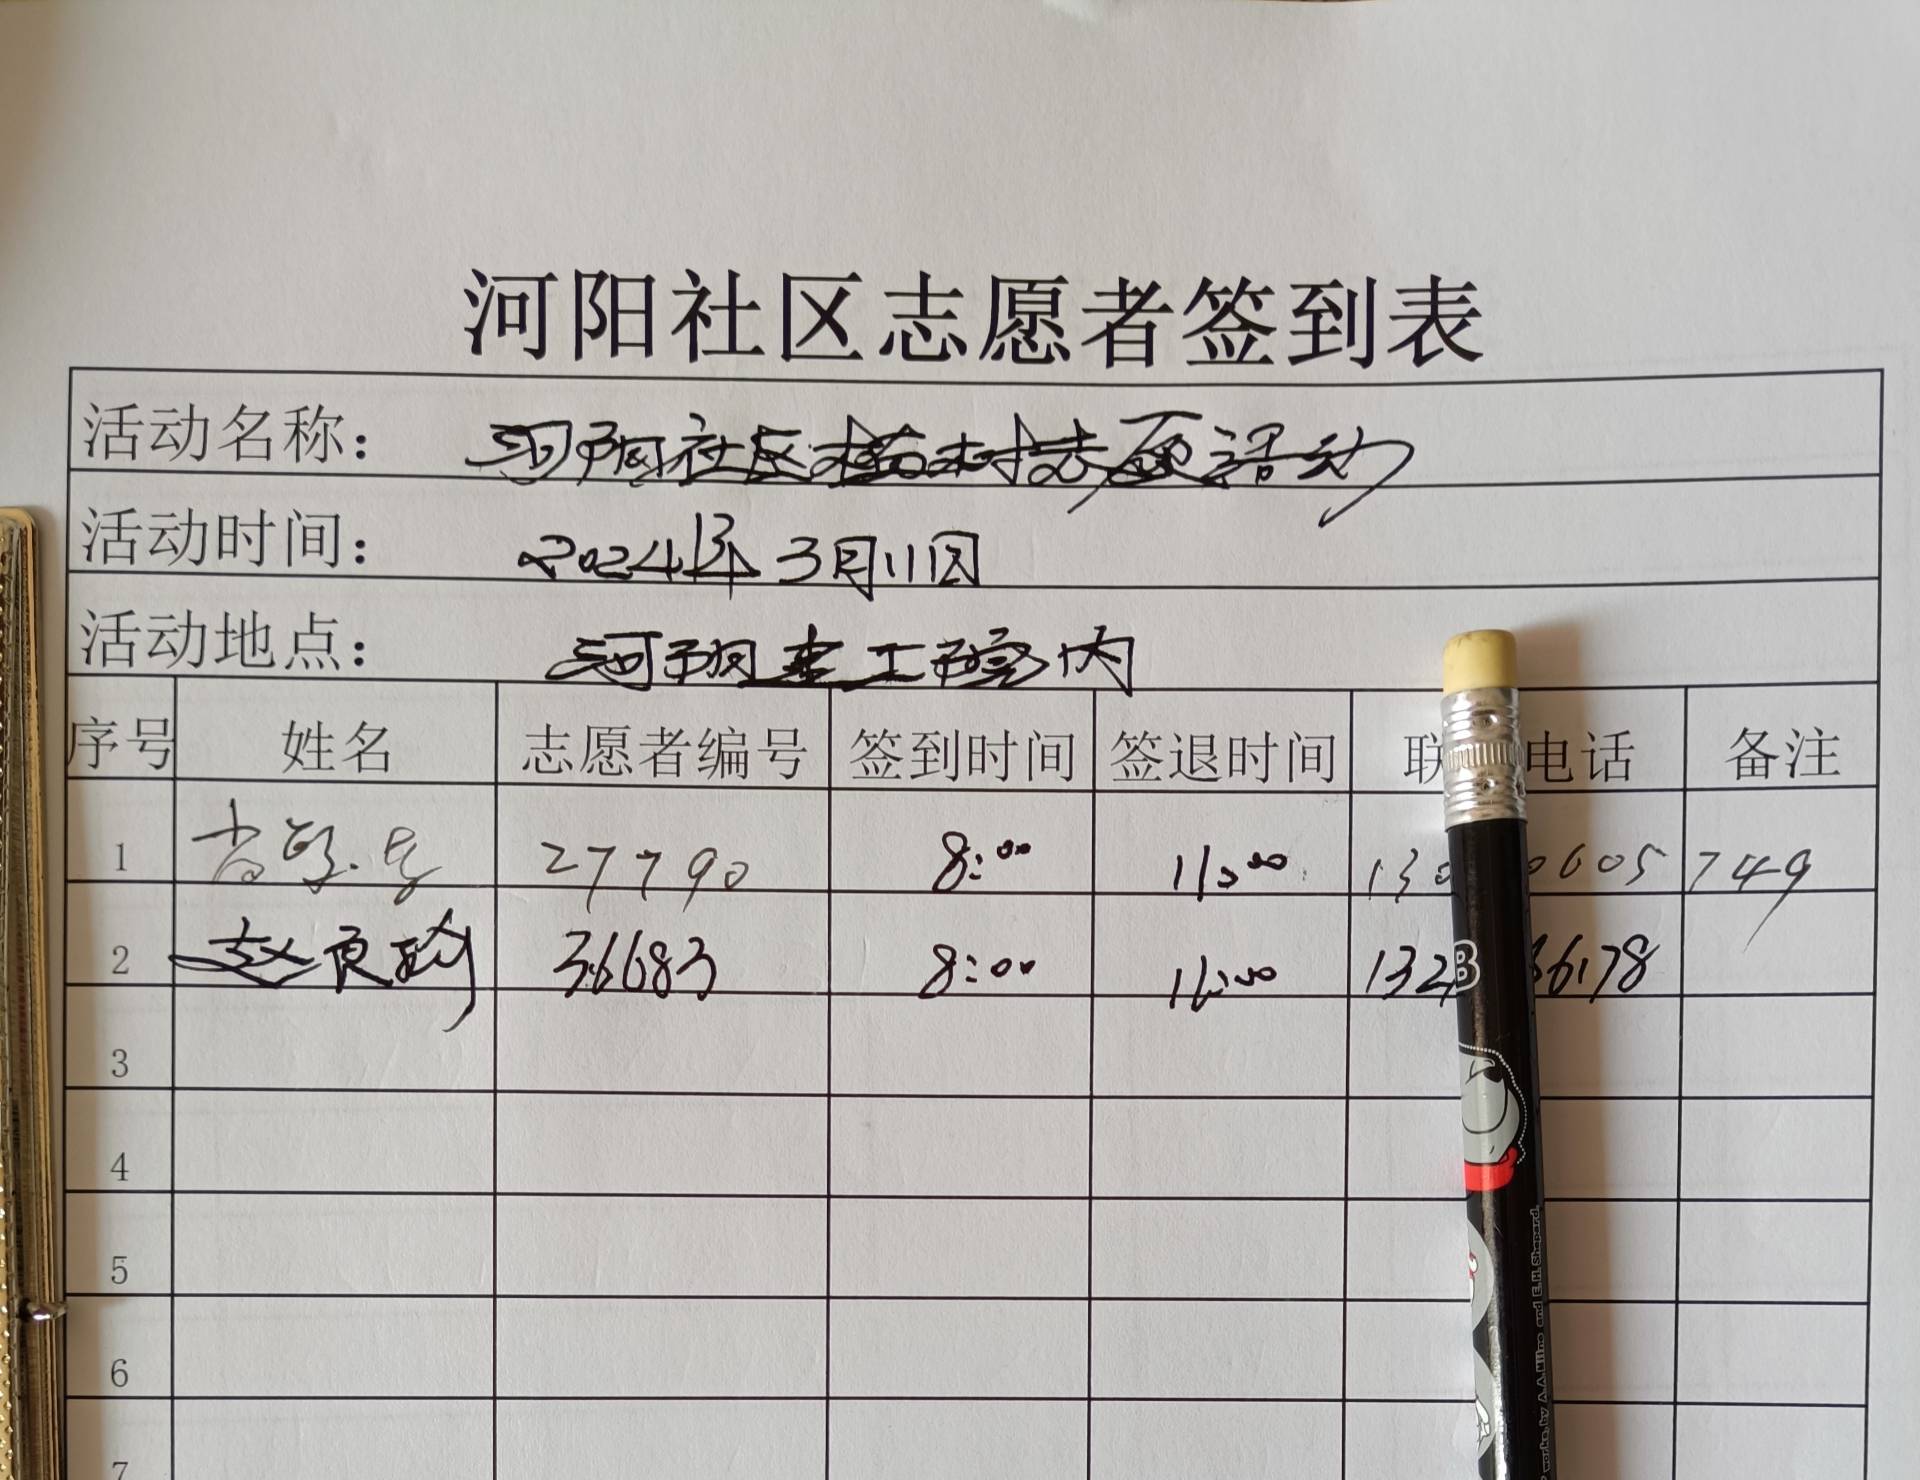 河阳社区志愿者签到表
活动名称： 河阳社区植树志愿活动
活动时间： 2024年3月11日
活动地点： 河阳 工 院内
序号 姓名 志愿者编号 签到时间 签退时间 联 电话 备注
1 27790 8:00 11:00 130 0605749
2 赵良 36683 8:00 11:00 132 36178
3
4
5
6
7
works, by A.A. Milne and E.H. Shepard.